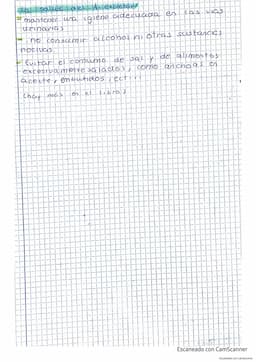 la salud del A. excretor
- mantener una igiene adecuada en las vias
urinarias
- no consumir alcohol ni otras sustancias
nocivas.
- Evitar el consumo de sal y de alimentos
excesivamente salados, como anchoas en
aceite, embutidos, ect...
(hay más en el libro)
Escaneado con CamScanner